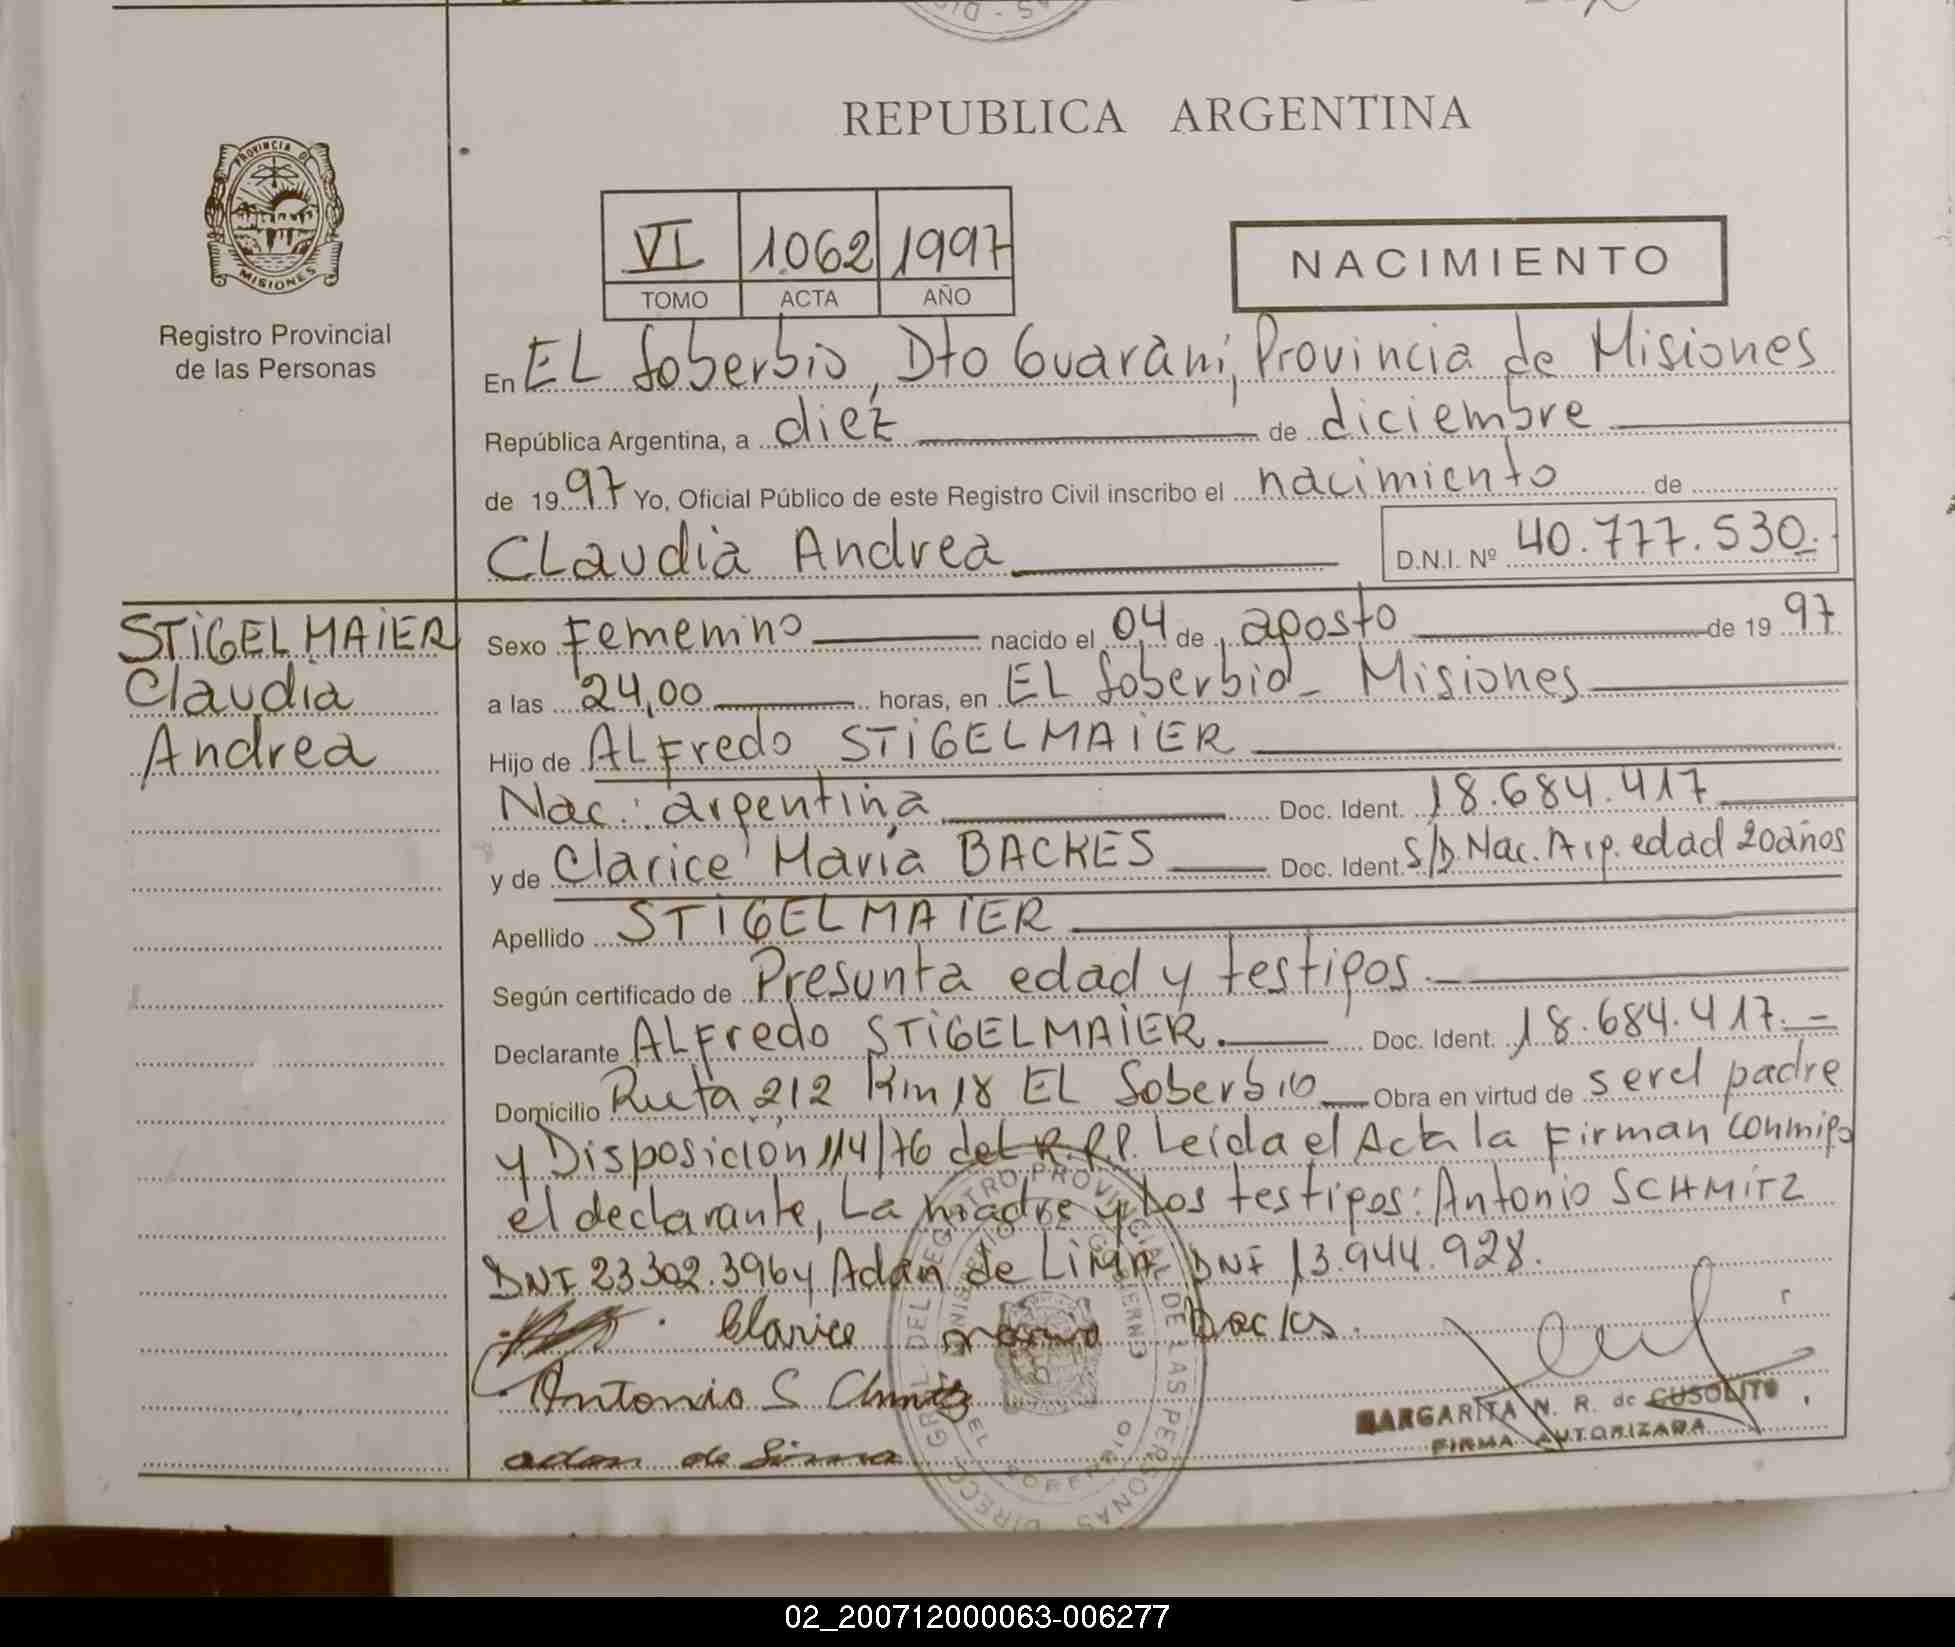 REPUBLICA ARGENTINA
PROVINCIA DE
MISIONES
Registro Provincial
de las Personas
VI 1062 1997
TOMO ACTA AÑO
NACIMIENTO
En EL Soberbio, Dto Guaraní, Provincia de Misiones
República Argentina, a diez de diciembre
de 1997 Yo, Oficial Público de este Registro Civil inscribo el nacimiento de
CLaudia Andrea D.N.I. Nº 40.777.530.
STIGELMAIER
Claudia
Andrea
Sexo Femenino nacido el 04 de agosto de 1997
a las 24,00 horas, en EL Soberbio - Misiones
Hijo de ALFredo STIGELMAIER
Nac: argentina Doc. Ident. 18.684.417
y de Clarice María BACKES Doc. Ident. S/D. Nac. Arg. edad 20 años
Apellido STIGELMAIER
Según certificado de Presunta edad y testigos.
Declarante ALFredo STIGELMAIER. Doc. Ident. 18.684.417.-
Domicilio Ruta 212 Km 18 EL Soberbio Obra en virtud de ser el padre
y Disposición 114/76 del R.P.P. Leída el Acta la Firman conmigo
el declarante, La madre y Los testigos: Antonio SCHMITZ
DNI 23302.396 y Adán de LIMA DNI 13.944.928.
Clarice Backs.
Antonio S
adan de Lima
MARGARITA N. R. de CUSOLITO
FIRMA AUTORIZADA
DIRECC. GRAL. DEL REGISTRO PROVINCIAL DE LAS PERSONAS
MINISTERIO GOBIERNO
EL SOBERBIO
02_200712000063-006277